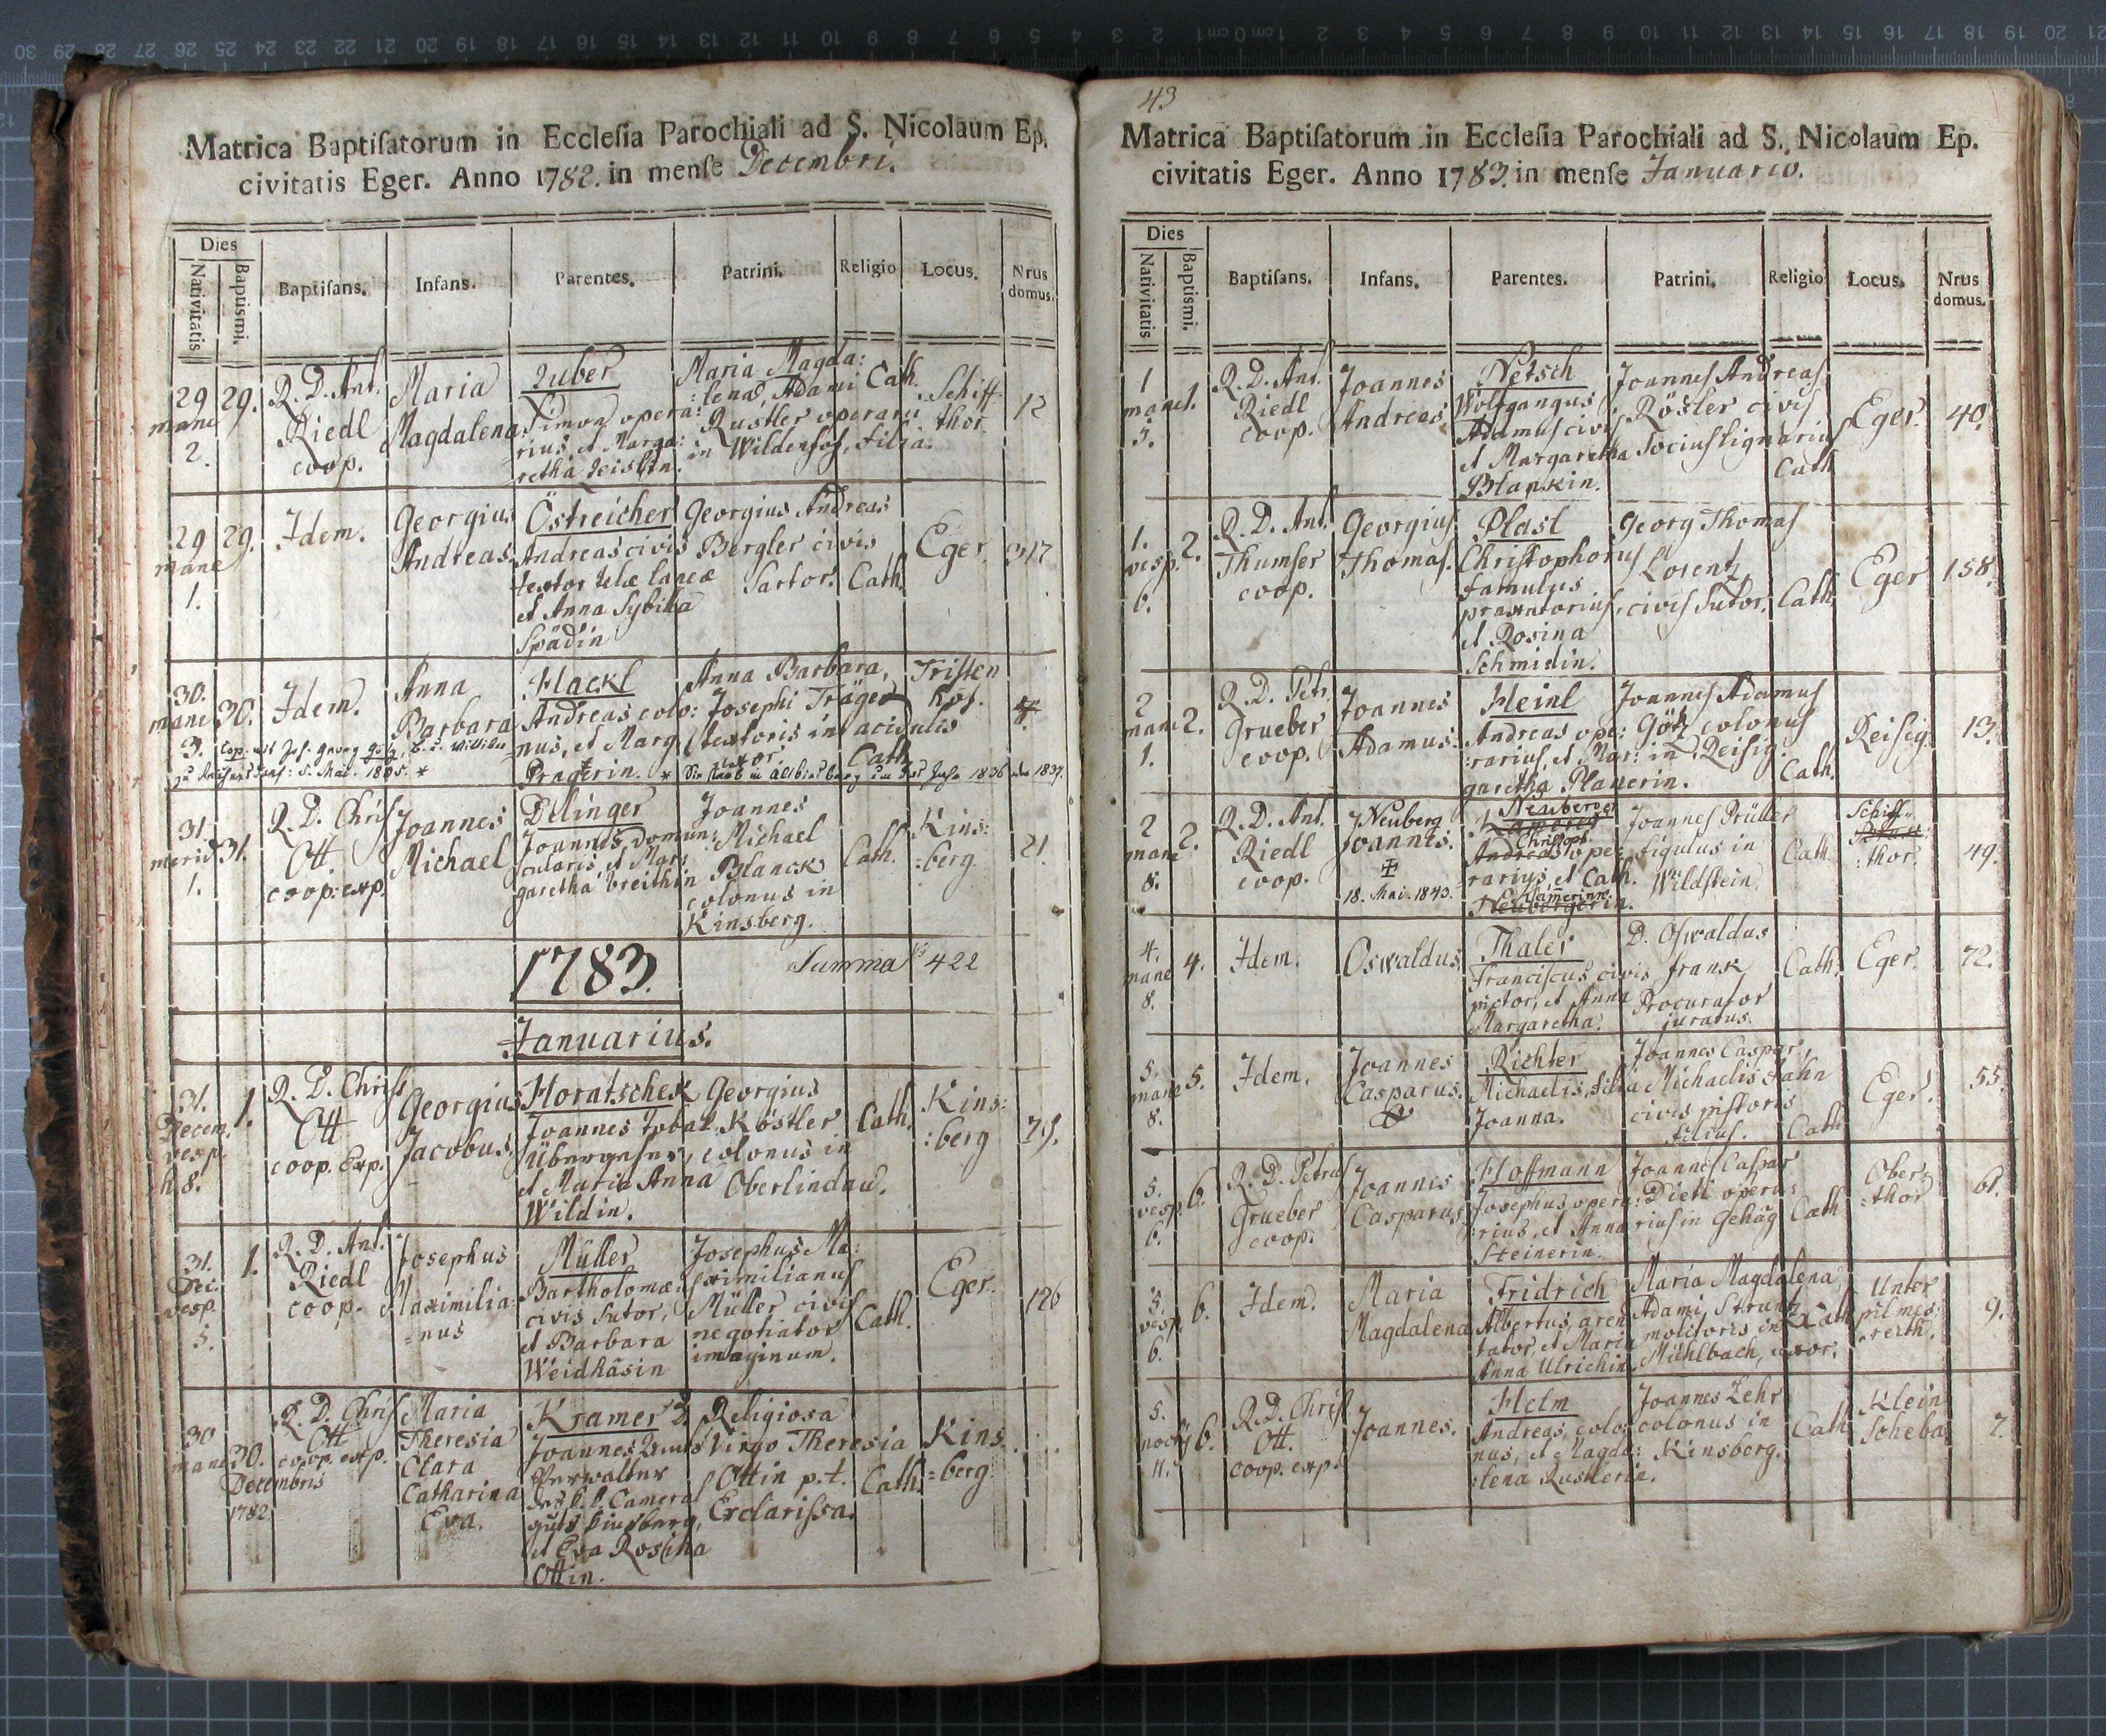 Matrica Baptiſatorum in Eccleſia Parochiali ad S. Nicolaum Ep.
civitatis Eger. Anno 1782. in menſe Decembri.
Dies
Nativitatis
Baptiſmi.
Baptiſans.
Infans.
Parentes.
Patrini.
Religio
Locus.
Nrus
domus.
29
mane
2.
29.
R. D. Ant.
Riedl
coop.
Maria
Magdalena
Zuber
Simon opera:
rius, et Marga:
retha
Maria Magda:
:lena, Adami
Rustler operarii
in Wildenhof, filia.
Cath.
Schiff
thor.
12
29
mane
1.
29.
Idem.
Georgius
Andreas.
Östreicher
Andreas civis
textor telæ laneæ
et Anna Sybilla
Spädin
Georgius Andreas
Bergler civis
Sartor.
Cath.
Eger.
317
30.
mane
3.
30.
Idem.
Anna
Barbara
Hackl
Andreas colo:
nus, et Marg.
Pragerin.
Anna Barbara,
Josephi Träger
textoris in acidulis
uxor
Cath.
Tristen
hof.
31.
merid.
1.
31.
R. D. Chriſ
Ott.
coop: exp.
Joannes
Michael
Dilinger
Joannes, domun:
cularis, et Mar:
garetha breithin
Joannes
Michael
Blanck
colonus in
Kinsberg.
Cath.
Kins:
:berg.
21.
1783.
Summa 422
Januarius.
31.
Decem.
vesp.
h. 8.
1.
R. D. Chriſt
Ott
coop. Exp.
Georgius
Jacobus.
Horatschek
Joannes
et Maria Anna
Wildin.
Georgius
Köstler
colonus in
Oberlindau.
Cath.
Kins:
:berg
31.
Dec.
vesp.
5.
1.
R. D. Ant.
Riedl
coop.
Josephus
Maximilia:
=nus
Müller
Bartholomæ:
civis Sutor,
et Barbara
Weidhäsin
Josephus Ma:
ximilianus
Müller civis
negotiator
imaginum.
Cath.
Eger.
126
30
mane
30.
Decembris
1782
R. D. Chriſ
Ott
coop. exp.
Maria
Theresia
Clara
Catharina
Eva.
Kramer D.
Joannes
Verwalter
des k. k. Cameral
guts Kinsberg,
et Eva Rosina
Ottin.
Religiosa
Virgo Theresia
Ottin p. t.
Exclarissa.
Cath.
Kins
=berg.
43
Matrica Baptiſatorum in Eccleſia Parochiali ad S. Nicolaum Ep.
civitatis Eger. Anno 1783. in menſe Januario.
Dies
Nativitatis
Baptiſmi.
Baptiſans.
Infans.
Parentes.
Patrini.
Religio
Locus.
Nrus
domus.
1
mane
5.
1.
R. D. Ant.
Riedl
coop.
Joannes
Andreas
Netsch
Wolfgangus
Adamus civis
et Margaretha
Blankin.
Joannes Andreas
Rösler civis
Socius lignarius
Cath
Eger.
40.
1.
vesp.
6.
2.
R. D. Ant.
Thumser
coop.
Georgius
Thomas.
Plasl
Christophorus
famulus
et Rosina
Schmidin.
Georg Thomas
Lorentz
civis Sutor.
Cath.
Eger
158.
2
mane
1.
2.
R. D. Petr.
Grueber
coop.
Joannes
Adamus.
Heinl
Andreas ope:
:rarius, et Mar:
garetha Planerin.
Joannes Adamus
Götz colonus
in Reisig.
Cath.
Reisig.
13.
2
mane
8.
2.
R. D. Ant.
Riedl
coop.
Neuberg
Joannes.
18. Mai. 1843.
Neuberger
Christoph
Andreas ope:
rarius, et Cath.
Neubergerin.
Joannes Prüller
figulus in
Wildstein.
Cath.
Schiff
:thor.
49.
4.
mane
8.
4.
Idem.
Oswaldus
Thaler
Franciscus civis
pictor, et Anna
Margaretha.
D. Oswaldus
frank
Procurator
juratus.
Cath.
Eger.
72.
5.
mane
8.
5.
Idem.
Joannes
Casparus.
Richter
Michaelis, filia
Joanna.
Joannes Caspar,
Michaelis Hahn
civis pistoris
filius.
Cath
Eger.
55.
5.
vesp.
6.
6.
R. D. Petrus
Grueber
coop.
Joannes
Casparus
Hoffmann
Josephus opera:
:rius, et Anna
Steinerin.
Joannes Caspar
Dietl opera:
rius in Gehäg
Cath
Ober
:thor
61.
5.
vesp.
6.
6.
Idem.
Maria
Magdalena
Fridrich
Albertus, aren
tator, et Maria
Anna Ulrichin
Maria Magdalena
Adami Strunz
molitoris in
Mühlbach, uxor.
Cath
Unter
pilmes:
:reith.
9.
5.
noctis
11.
6.
R. D. Chriſt
Ott.
coop. exp.
Joannes.
Helm
Andreas, colo
nus, et Magda:
:lena Rustlerin.
Joannes Zehr
colonus in
Kinsberg.
Cath
Klein
Scheba
7.